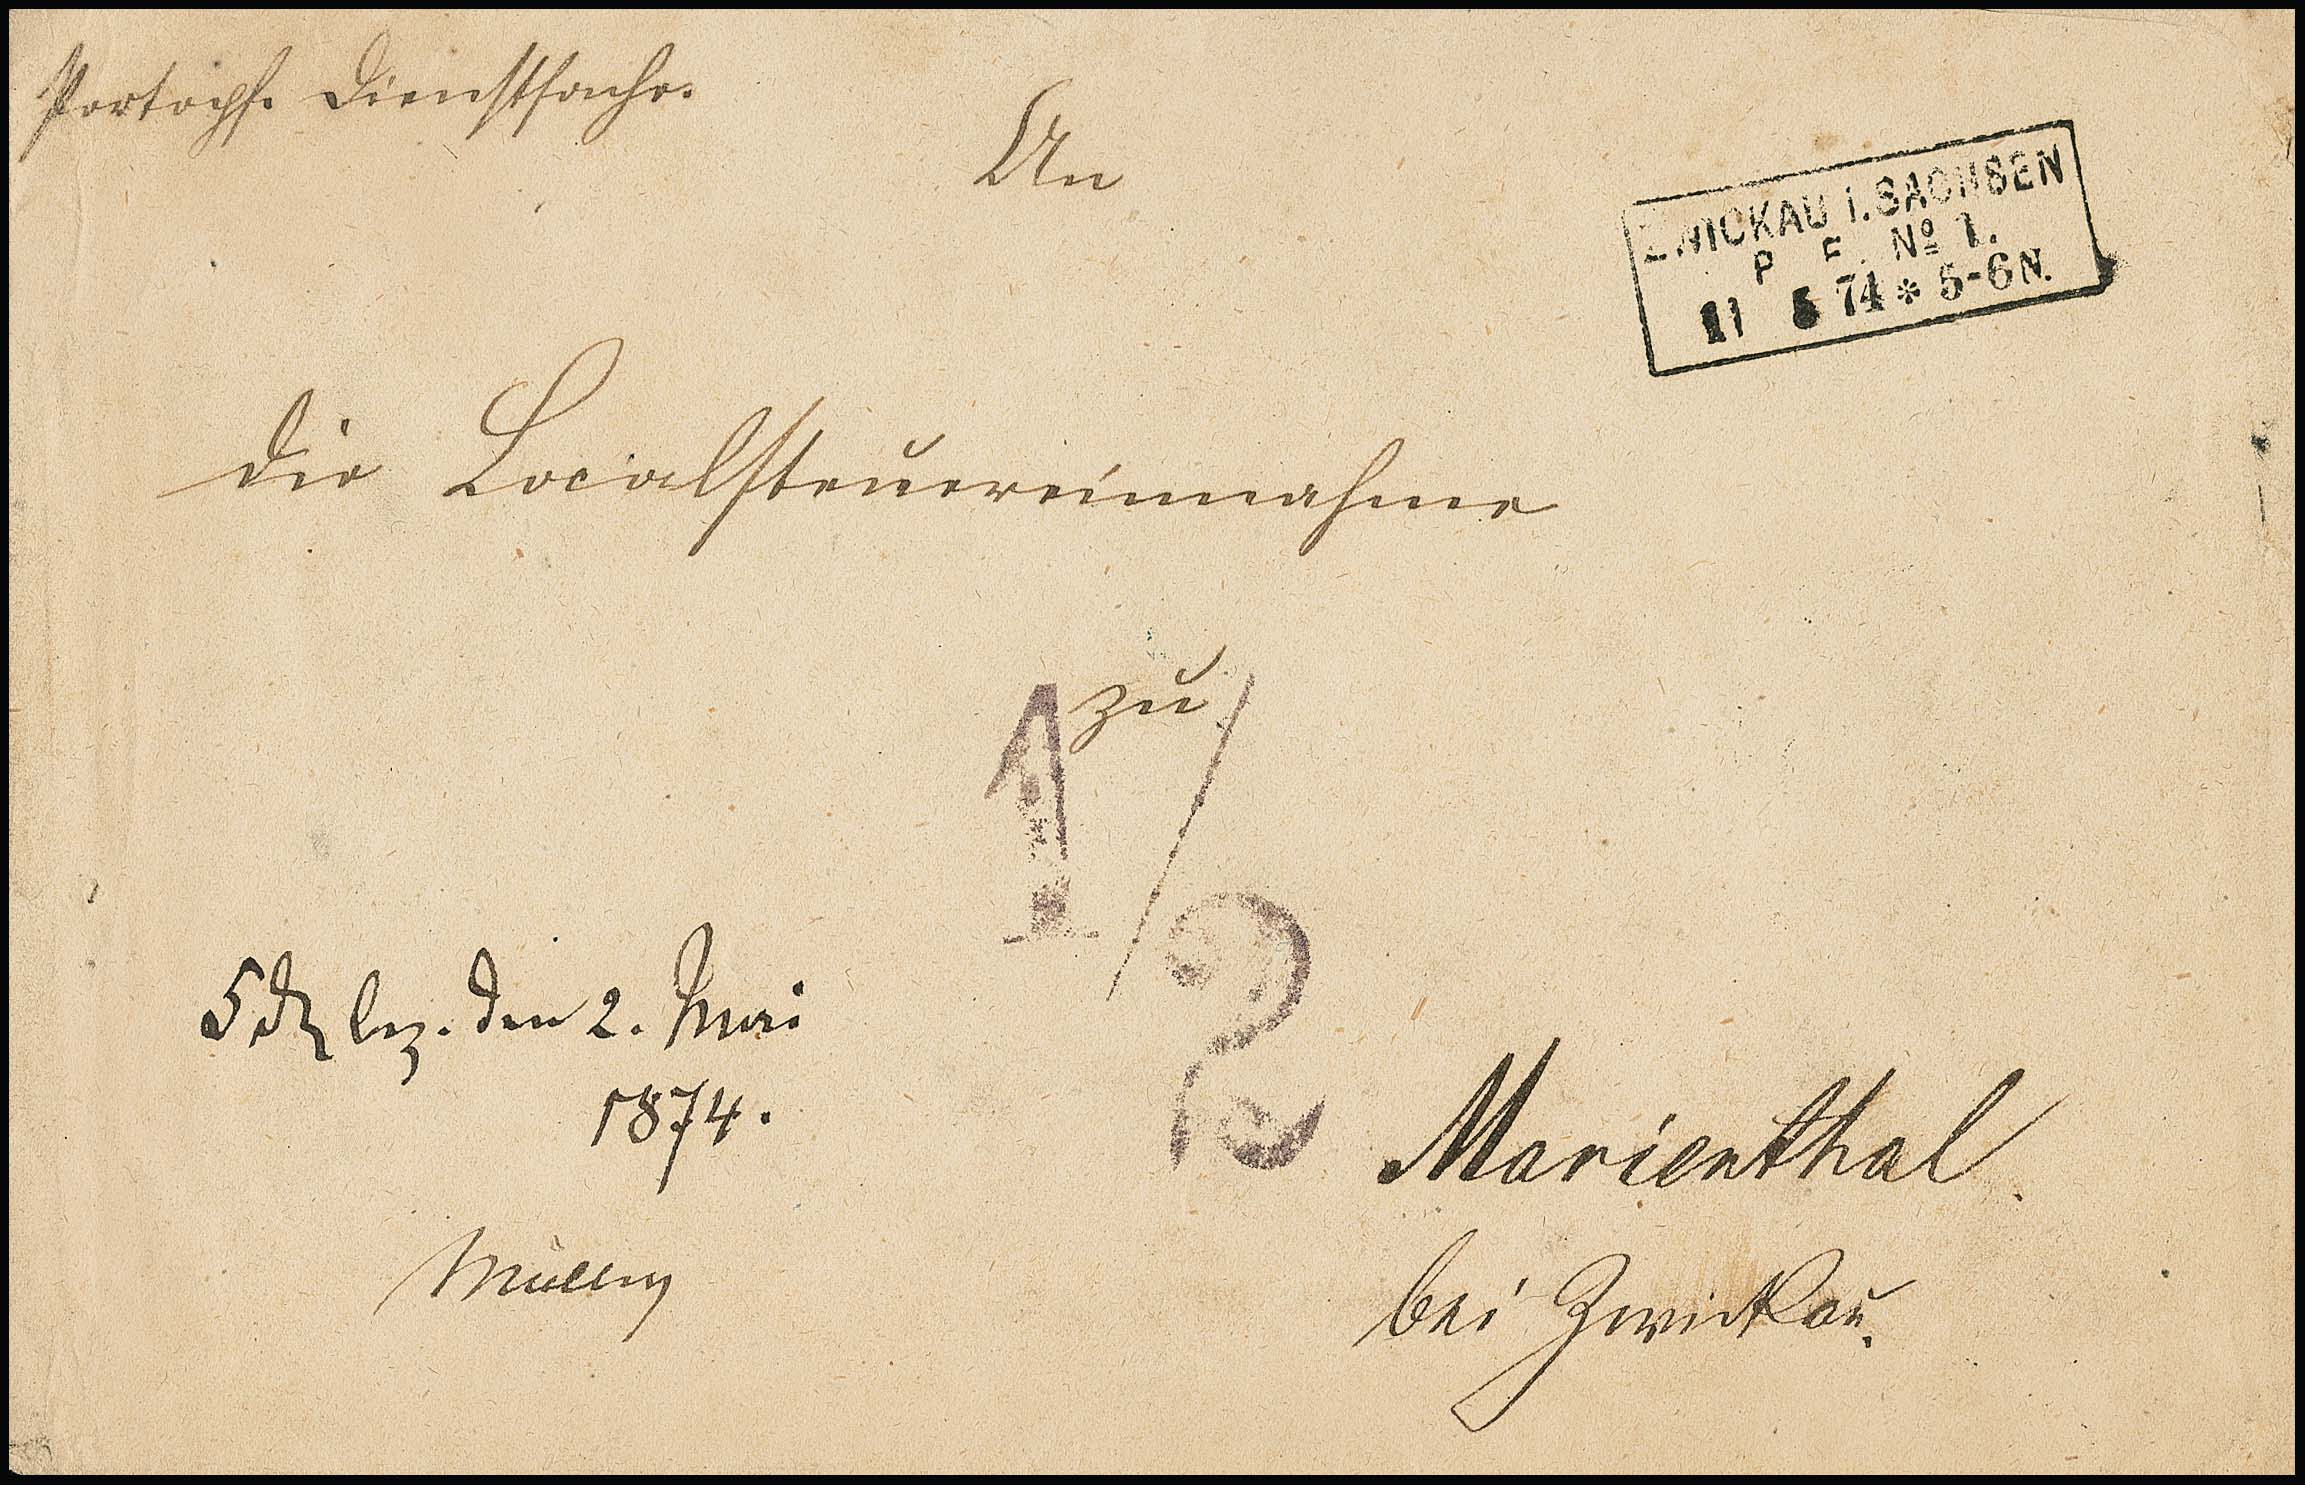 Portopfl. Dienstsache.
An
ZWICKAU I. SACHSEN
P E No 1.
11 5 74 * 5-6 N.
die Localsteuereinnahme
zu
1/2
bez. den 2. Mai
1874.
Müller
Marienthal
bei Zwickau.